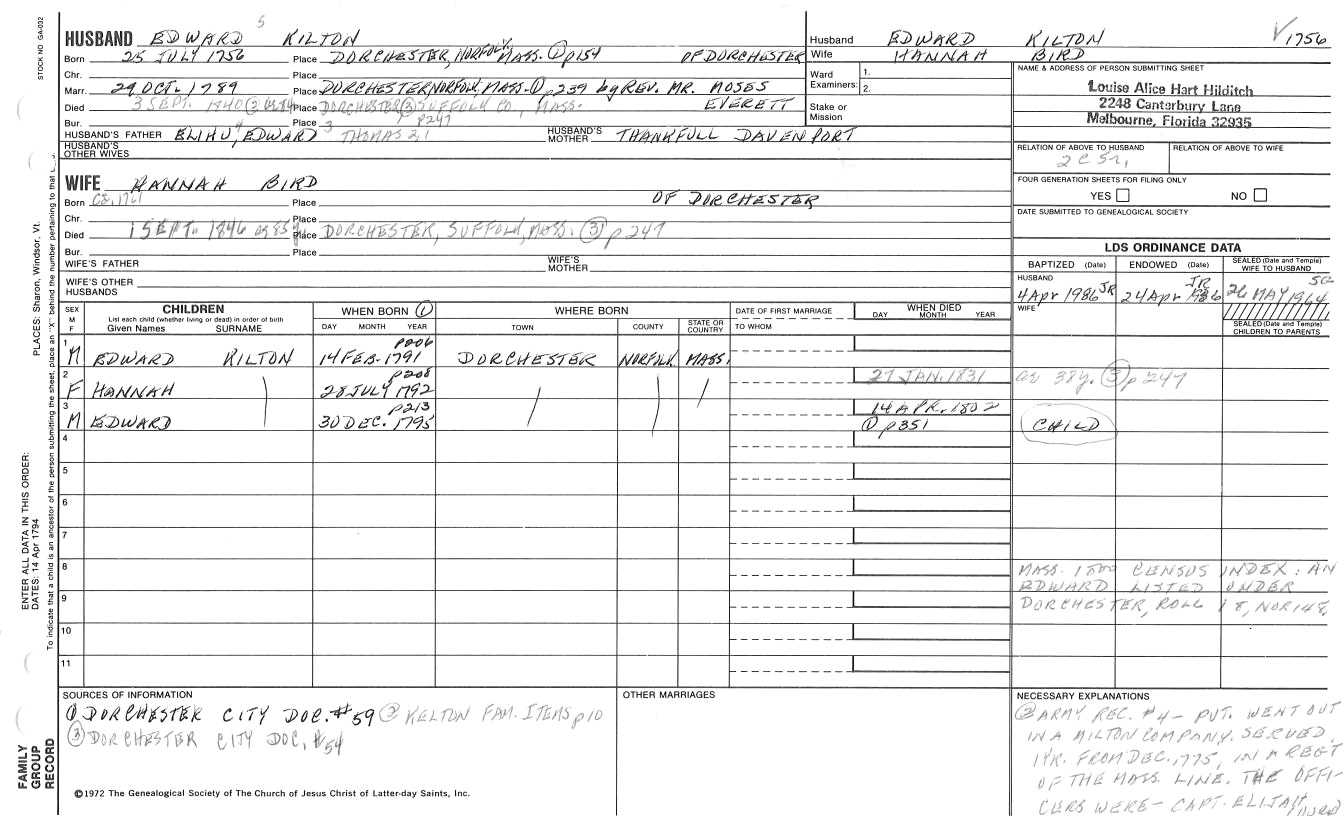 STOCK NO. GA-032
5
HUSBAND EDWARD KILTON
Born 25 JULY 1756 Place DORCHESTER, NORFOLK, MASS. ① p154 OF DORCHESTER
Chr. Place
Marr. 29 OCT. 1789 Place DORCHESTER, NORFOLK, MASS. ①, p239 by REV. MR. MOSES EVERETT
Died 3 SEPT. 1840 ③ Place DORCHESTER ③ SUFFOLK CO., MASS.
Bur. Place p247
HUSBAND'S FATHER ELIHU, EDWARD THOMAS 2, 1 HUSBAND'S MOTHER THANKFULL DAVENPORT
HUSBAND'S OTHER WIVES
WIFE HANNAH BIRD
Born Ca. 1761 Place OF DORCHESTER
Chr. Place
Died 1 SEPT. 1846 ag 85y Place DORCHESTER, SUFFOLK, MASS. ③ p247
Bur. Place
WIFE'S FATHER WIFE'S MOTHER
WIFE'S OTHER HUSBANDS
Husband EDWARD KILTON
Wife HANNAH BIRD
√1756
Ward Examiners: 1. 2.
Stake or Mission
NAME & ADDRESS OF PERSON SUBMITTING SHEET
Louise Alice Hart Hilditch
2248 Canterbury Lane
Melbourne, Florida 32935
RELATION OF ABOVE TO HUSBAND RELATION OF ABOVE TO WIFE
2 C 5 r,
FOUR GENERATION SHEETS FOR FILING ONLY
YES NO
DATE SUBMITTED TO GENEALOGICAL SOCIETY
LDS ORDINANCE DATA
BAPTIZED (Date) ENDOWED (Date) SEALED (Date and Temple) WIFE TO HUSBAND
HUSBAND
4 Apr 1986 JR 24 Apr 1986 JR 26 MAY 1964 SG
WIFE
SEALED (Date and Temple) CHILDREN TO PARENTS
SEX M F CHILDREN WHEN BORN ① WHERE BORN DATE OF FIRST MARRIAGE WHEN DIED
List each child (whether living or dead) in order of birth
Given Names SURNAME DAY MONTH YEAR TOWN COUNTY STATE OR COUNTRY TO WHOM DAY MONTH YEAR
1 M EDWARD KILTON 14 FEB. 1791 p206 DORCHESTER NORFOLK MASS.
2 F HANNAH 28 JULY 1792 p208 27 JAN. 1831 ag 38y. ③ p247
3 M EDWARD 30 DEC. 1795 p213 14 APR. 1802 ① p351 CHILD
4
5
6
7
8
9
10
11
MASS. 1800 CENSUS INDEX: AN
EDWARD LISTED UNDER
DORCHESTER, ROLL 18, NOR148,
SOURCES OF INFORMATION
① DORCHESTER CITY DOC. #59 ② KELTON FAM. ITEMS p10
③ DORCHESTER CITY DOC. #54
OTHER MARRIAGES
NECESSARY EXPLANATIONS
② ARMY REC. #4 - PVT. WENT OUT
IN A MILTON COMPANY. SERVED
1 YR. FROM DEC. 1775, IN A REGT
OF THE MASS. LINE. THE OFFI-
CERS WERE - CAPT. ELIJAH
©1972 The Genealogical Society of The Church of Jesus Christ of Latter-day Saints, Inc.
FAMILY GROUP RECORD
ENTER ALL DATA IN THIS ORDER:
DATES: 14 Apr 1794
PLACES: Sharon, Windsor, Vt.
To indicate that a child is an ancestor of the person submitting the sheet, place an "X" behind the number pertaining to that